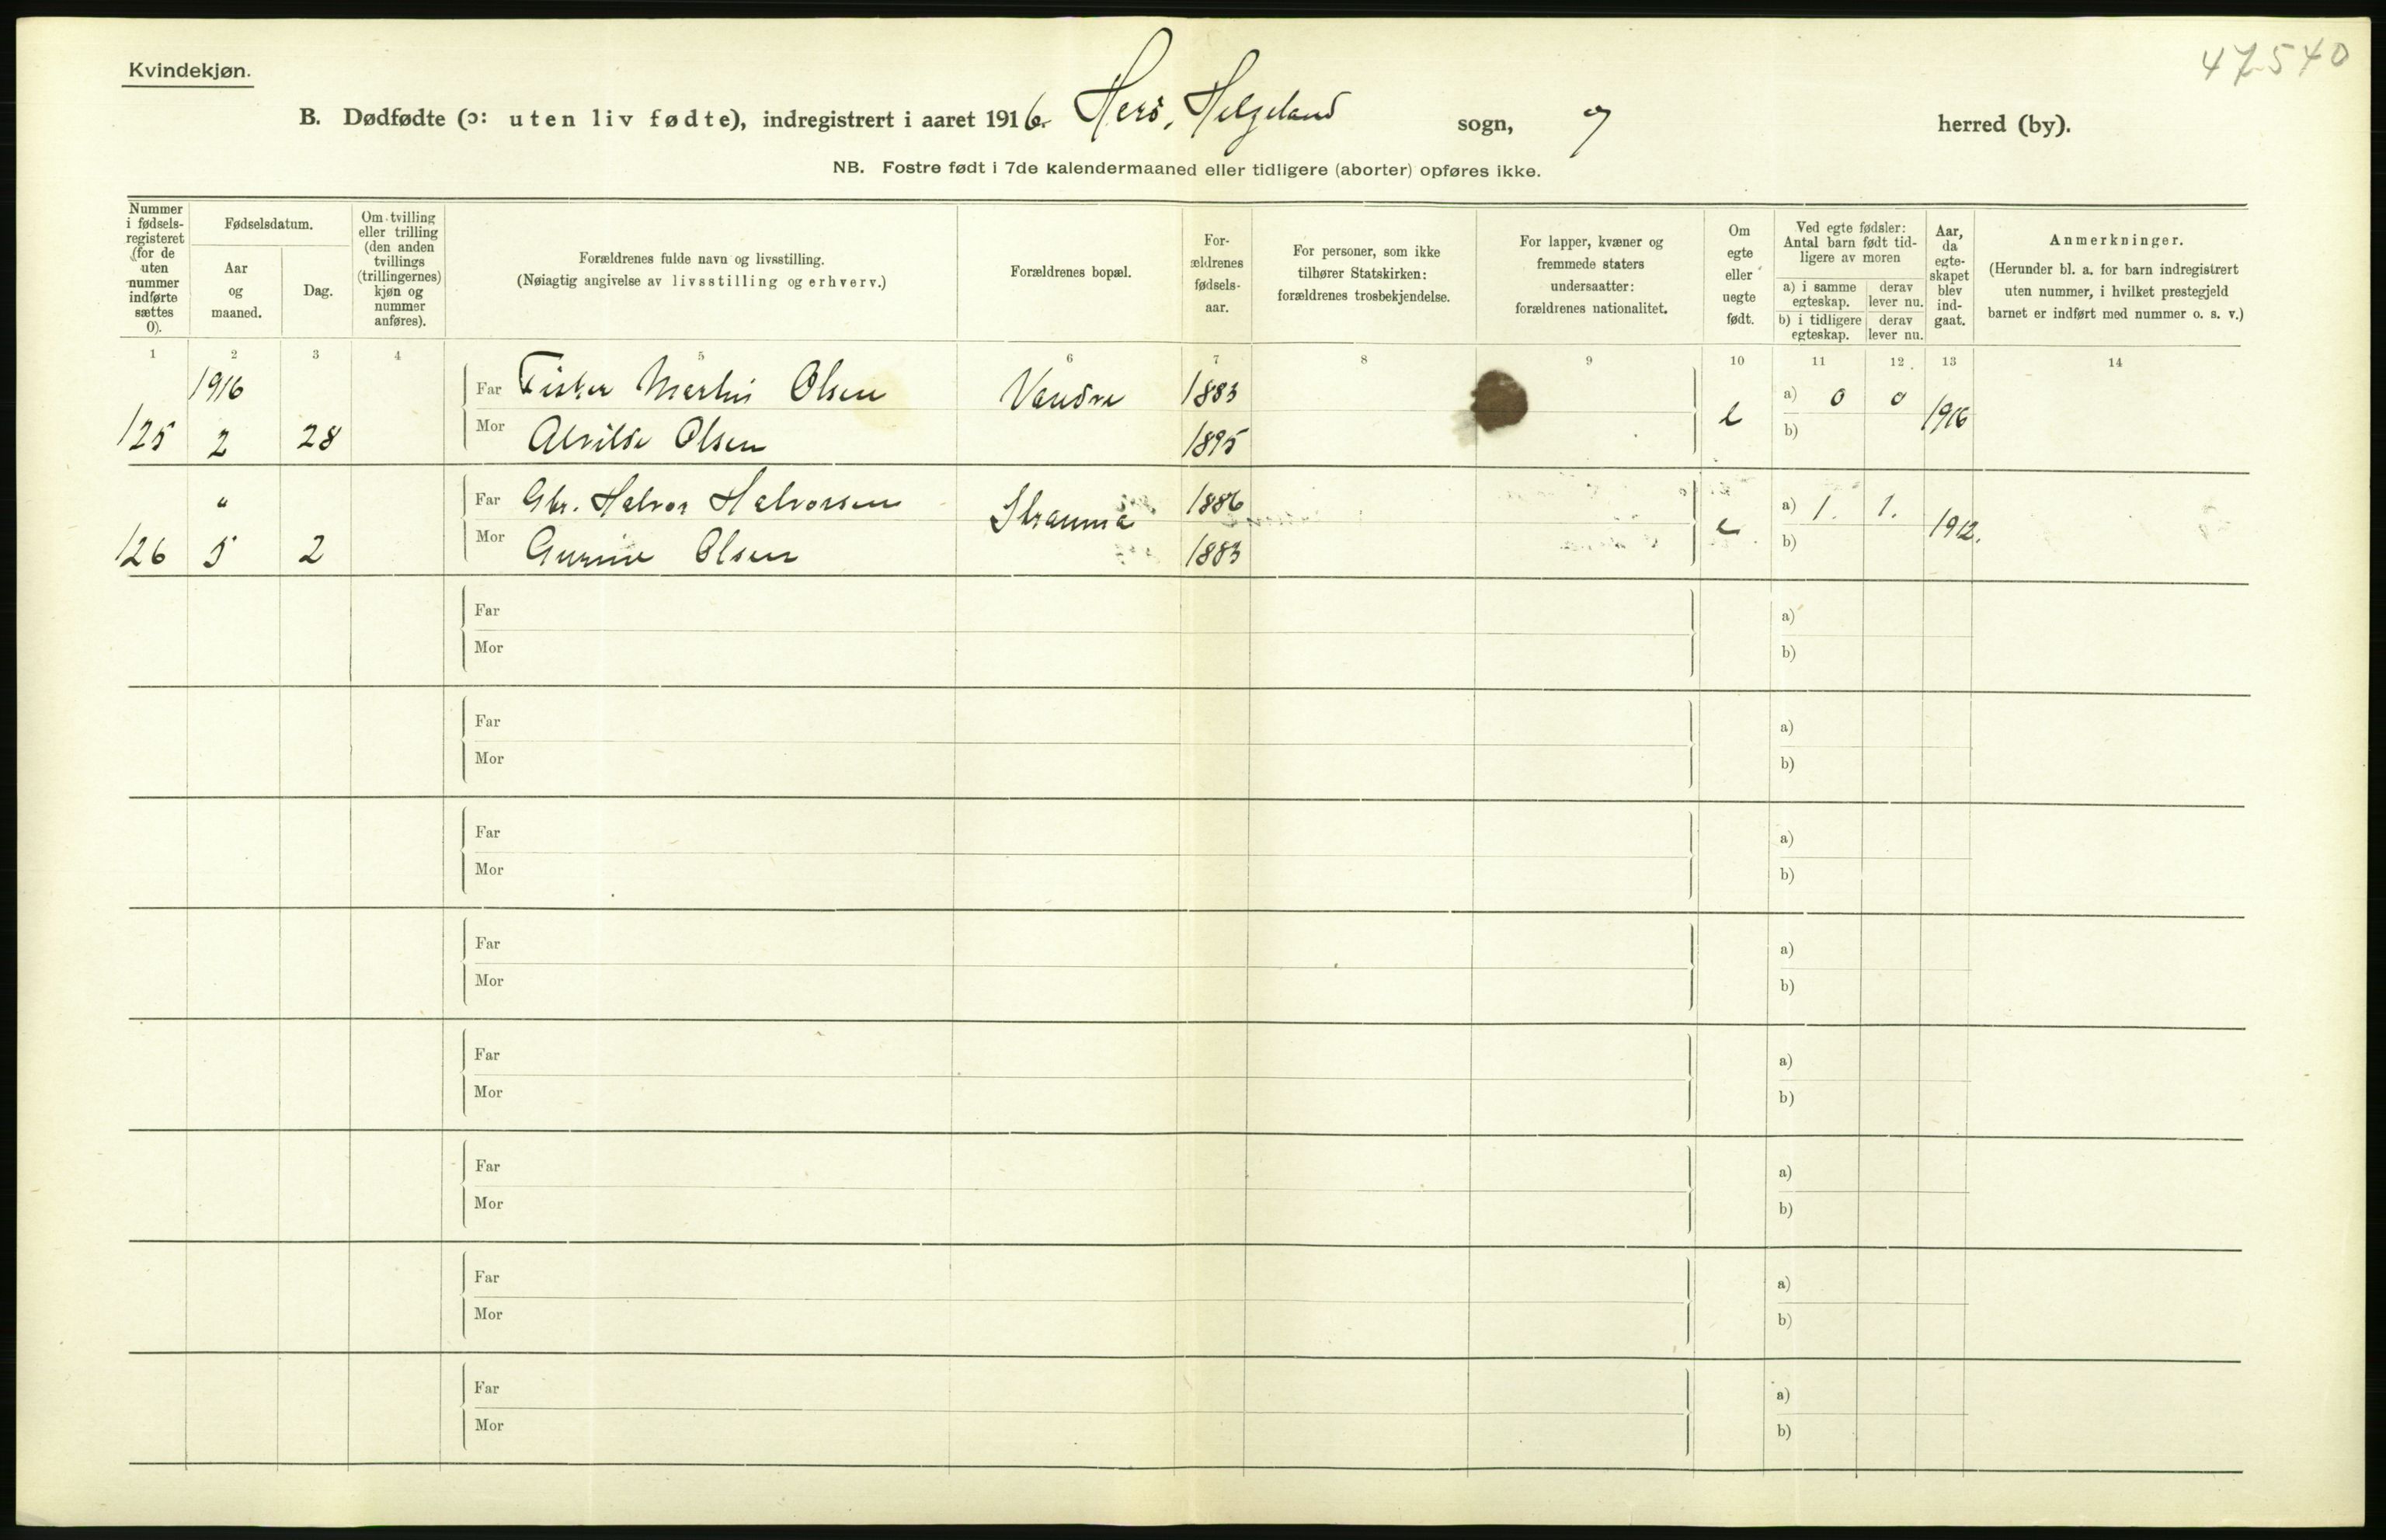 47540
Kvindekjøn.
B. Dødfødte (ɔ: uten liv fødte), indregistrert i aaret 1916. Herö, Helgeland sogn, og herred (by).
NB. Fostre født i 7de kalendermaaned eller tidligere (aborter) opføres ikke.
Nummer i fødselsregisteret (for de uten nummer indførte sættes 0).
Fødselsdatum.
Aar og maaned.
Dag.
Om tvilling eller trilling (den anden tvillings (trillingernes) kjøn og nummer anføres).
Forældrenes fulde navn og livsstilling.
(Nøiagtig angivelse av livsstilling og erhverv.)
Forældrenes bopæl.
Forældrenes fødselsaar.
For personer, som ikke tilhører Statskirken: forældrenes trosbekjendelse.
For lapper, kvæner og fremmede staters undersaatter: forældrenes nationalitet.
Om egte eller uegte født.
Ved egte fødsler: Antal barn født tidligere av moren
a) i samme egteskap. derav lever nu.
b) i tidligere egteskap. derav lever nu.
Aar, da egteskapet blev indgaat.
Anmerkninger.
(Herunder bl. a. for barn indregistrert uten nummer, i hvilket prestegjeld barnet er indført med nummer o. s. v.)
1 2 3 4 5 6 7 8 9 10 11 12 13 14
1916 Far Fisker Martin Olsen Vandve 1883 e a) 0 0 1916
125 2 28 Mor Alvilde Olsen 1895 b)
" Far Gbr. Halvor Halvorsen Straumø 1886 e a) 1. 1. 1912.
126 5 2 Mor Gurine Olsen 1883 b)
Far a)
Mor b)
Far a)
Mor b)
Far a)
Mor b)
Far a)
Mor b)
Far a)
Mor b)
Far a)
Mor b)
Far a)
Mor b)
Far a)
Mor b)